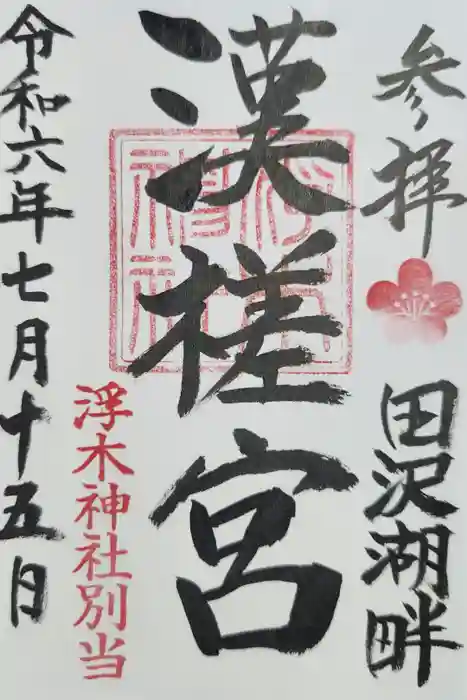 参拝
田沢湖畔
漢槎宮
浮木神社
浮木神社別当
令和六年七月十五日